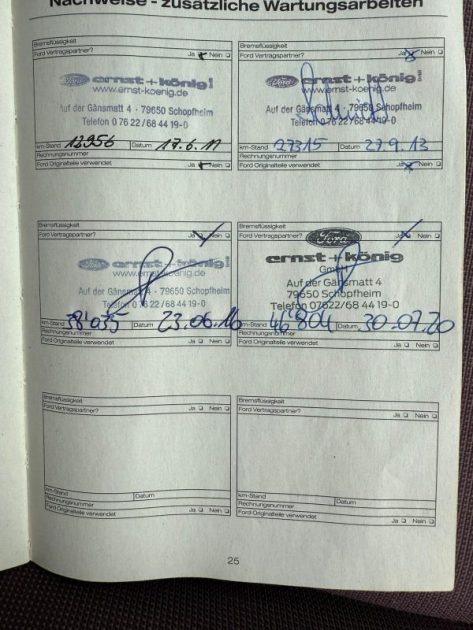 Nachweise - zusätzliche Wartungsarbeiten
Bremsflüssigkeit
Ford Vertragspartner? Ja Nein
Ford ernst+könig!
www.ernst-koenig.de
Auf der Gänsmatt 4 · 79650 Schopfheim
Telefon 0 76 22/68 44 19-0
km-Stand 12956 Datum 17.6.11
Rechnungsnummer
Ford Originalteile verwendet Ja Nein
Bremsflüssigkeit
Ford Vertragspartner? Ja Nein
Ford ernst+könig!
www.ernst-koenig.de
Auf der Gänsmatt 4 · 79650 Schopfheim
Telefon 0 76 22/68 44 19-0
km-Stand 27315 Datum 27.9.13
Rechnungsnummer
Ford Originalteile verwendet Ja Nein
Bremsflüssigkeit
Ford Vertragspartner? Ja Nein
Ford ernst+könig!
www.ernst-koenig.de
Auf der Gänsmatt 4 · 79650 Schopfheim
Telefon 0 76 22/68 44 19-0
km-Stand 38'035 Datum 23.06.16
Rechnungsnummer
Ford Originalteile verwendet Ja Nein
Bremsflüssigkeit
Ford Vertragspartner? Ja Nein
Ford
ernst+könig
GmbH
Auf der Gänsmatt 4
79650 Schopfheim
Telefon 07622/68 44 19-0
km-Stand 46'804 Datum 30.07.20
Rechnungsnummer
Ford Originalteile verwendet Ja Nein
Bremsflüssigkeit
Ford Vertragspartner? Ja Nein
km-Stand Datum
Rechnungsnummer
Ford Originalteile verwendet Ja Nein
Bremsflüssigkeit
Ford Vertragspartner? Ja Nein
km-Stand Datum
Rechnungsnummer
Ford Originalteile verwendet Ja Nein
25